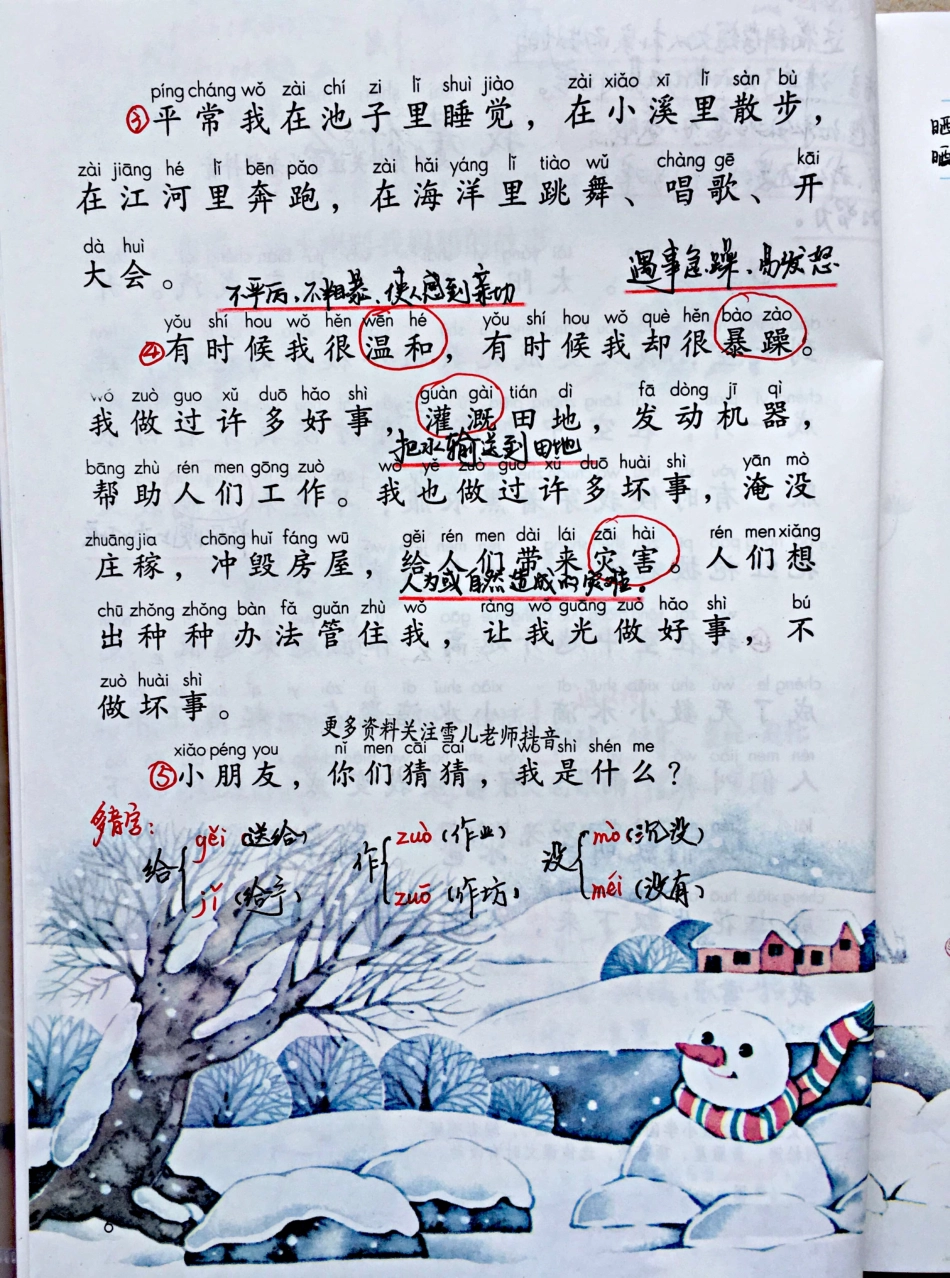 píng cháng wǒ zài chí zi lǐ shuì jiào zài xiǎo xī lǐ sàn bù
③平常我在池子里睡觉，在小溪里散步，
zài jiāng hé lǐ bēn pǎo zài hǎi yáng lǐ tiào wǔ chàng gē kāi
在江河里奔跑，在海洋里跳舞、唱歌、开
dà huì
大会。
不严厉，不粗暴、使人感到亲切
遇事急躁、易发怒
yǒu shí hou wǒ hěn wēn hé yǒu shí hou wǒ què hěn bào zào
④有时候我很温和，有时候我却很暴躁。
wǒ zuò guo xǔ duō hǎo shì guàn gài tián dì fā dòng jī qì
我做过许多好事，灌溉田地，发动机器，
把水输送到田地
bāng zhù rén men gōng zuò wǒ yě zuò guo xǔ duō huài shì yān mò
帮助人们工作。我也做过许多坏事，淹没
zhuāng jia chōng huǐ fáng wū gěi rén men dài lái zāi hài rén men xiǎng
庄稼，冲毁房屋，给人们带来灾害。人们想
人为或自然造成的灾难。
chū zhǒng zhǒng bàn fǎ guǎn zhù wǒ ràng wǒ guāng zuò hǎo shì bú
出种种办法管住我，让我光做好事，不
zuò huài shì
做坏事。
更多资料关注雪儿老师抖音
xiǎo péng you nǐ men cāi cai wǒ shì shén me
⑤小朋友，你们猜猜，我是什么？
多音字：
给 gěi（送给） 作 zuò（作业） 没 mò（沉没）
jǐ（给予） zuō（作坊） méi（没有）
6